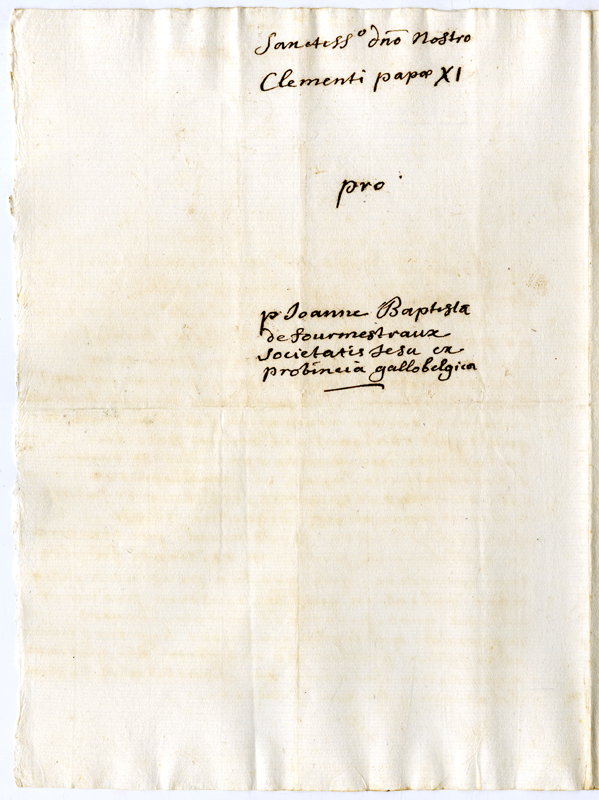 Sanctiss° dño Nostro
Clementi papæ XI
pro
p Ioanne Baptista
de fourmestraux
Societatis Iesu ex
probincia gallobelgica